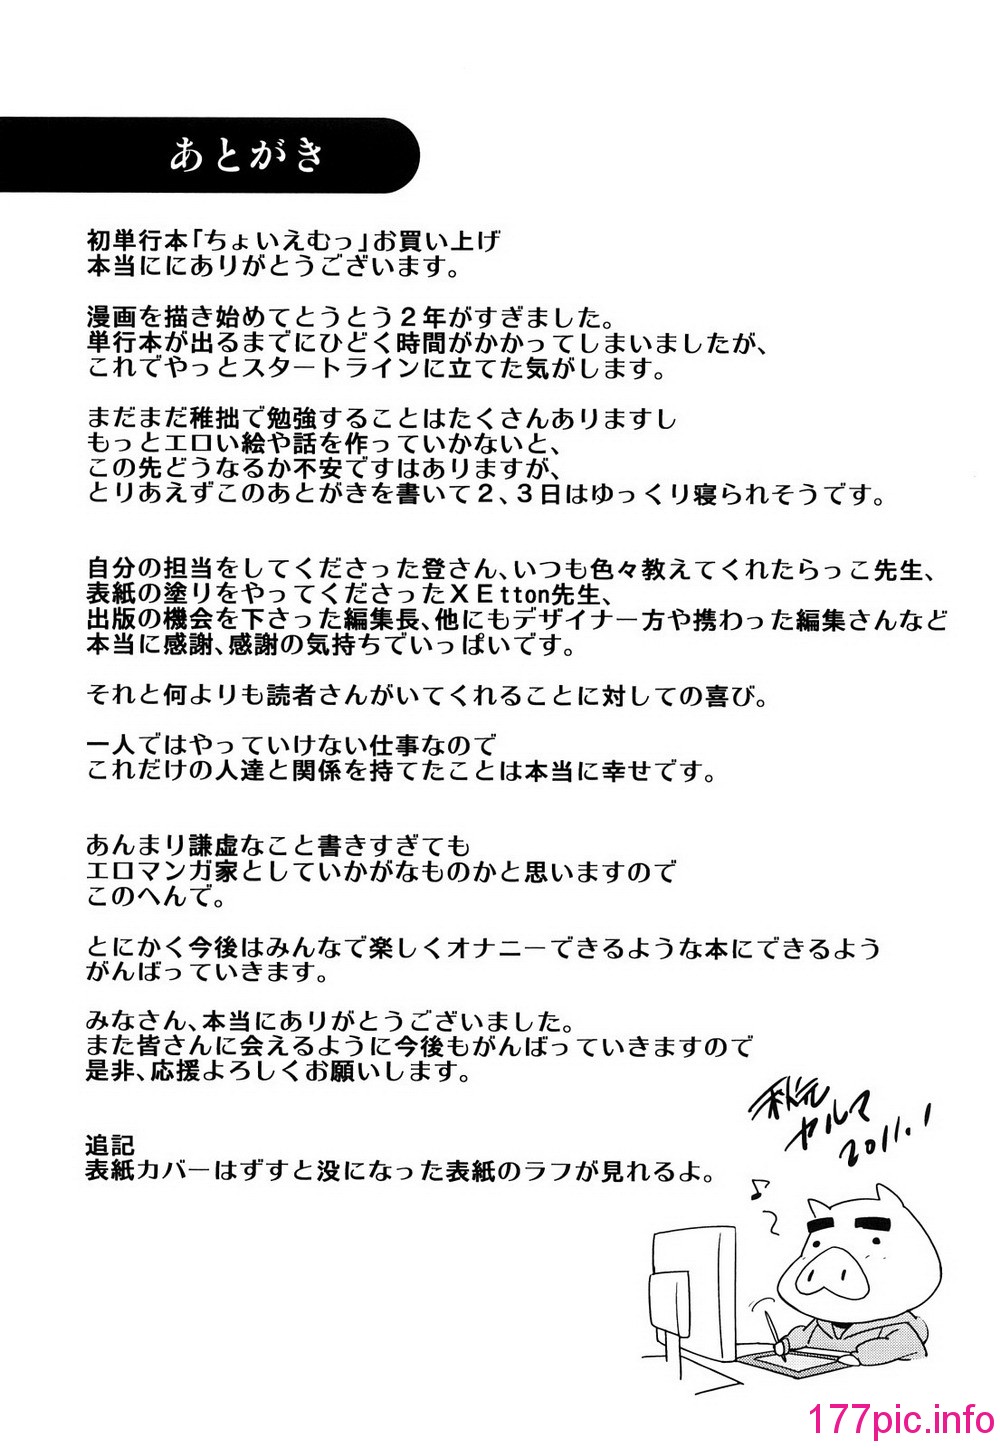 あとがき
初単行本「ちょいえむっ」お買い上げ
本当ににありがとうございます。
漫画を描き始めてとうとう２年がすぎました。
単行本が出るまでにひどく時間がかかってしまいましたが、
これでやっとスタートラインに立てた気がします。
まだまだ稚拙で勉強することはたくさんありますし
もっとエロい絵や話を作っていかないと、
この先どうなるか不安ですはありますが、
とりあえずこのあとがきを書いて２、３日はゆっくり寝られそうです。
自分の担当をしてくださった登さん、いつも色々教えてくれたらっこ先生、
表紙の塗りをやってくださったＸＥtton先生、
出版の機会を下さった編集長、他にもデザイナー方や携わった編集さんなど
本当に感謝、感謝の気持ちでいっぱいです。
それと何よりも読者さんがいてくれることに対しての喜び。
一人ではやっていけない仕事なので
これだけの人達と関係を持てたことは本当に幸せです。
あんまり謙虚なこと書きすぎても
エロマンガ家としていかがなものかと思いますので
このへんで。
とにかく今後はみんなで楽しくオナニーできるような本にできるよう
がんばっていきます。
みなさん、本当にありがとうございました。
また皆さんに会えるように今後もがんばっていきますので
是非、応援よろしくお願いします。
秋元
ヤルマ
2011.1
追記
表紙カバーはずすと没になった表紙のラフが見れるよ。
177pic.info